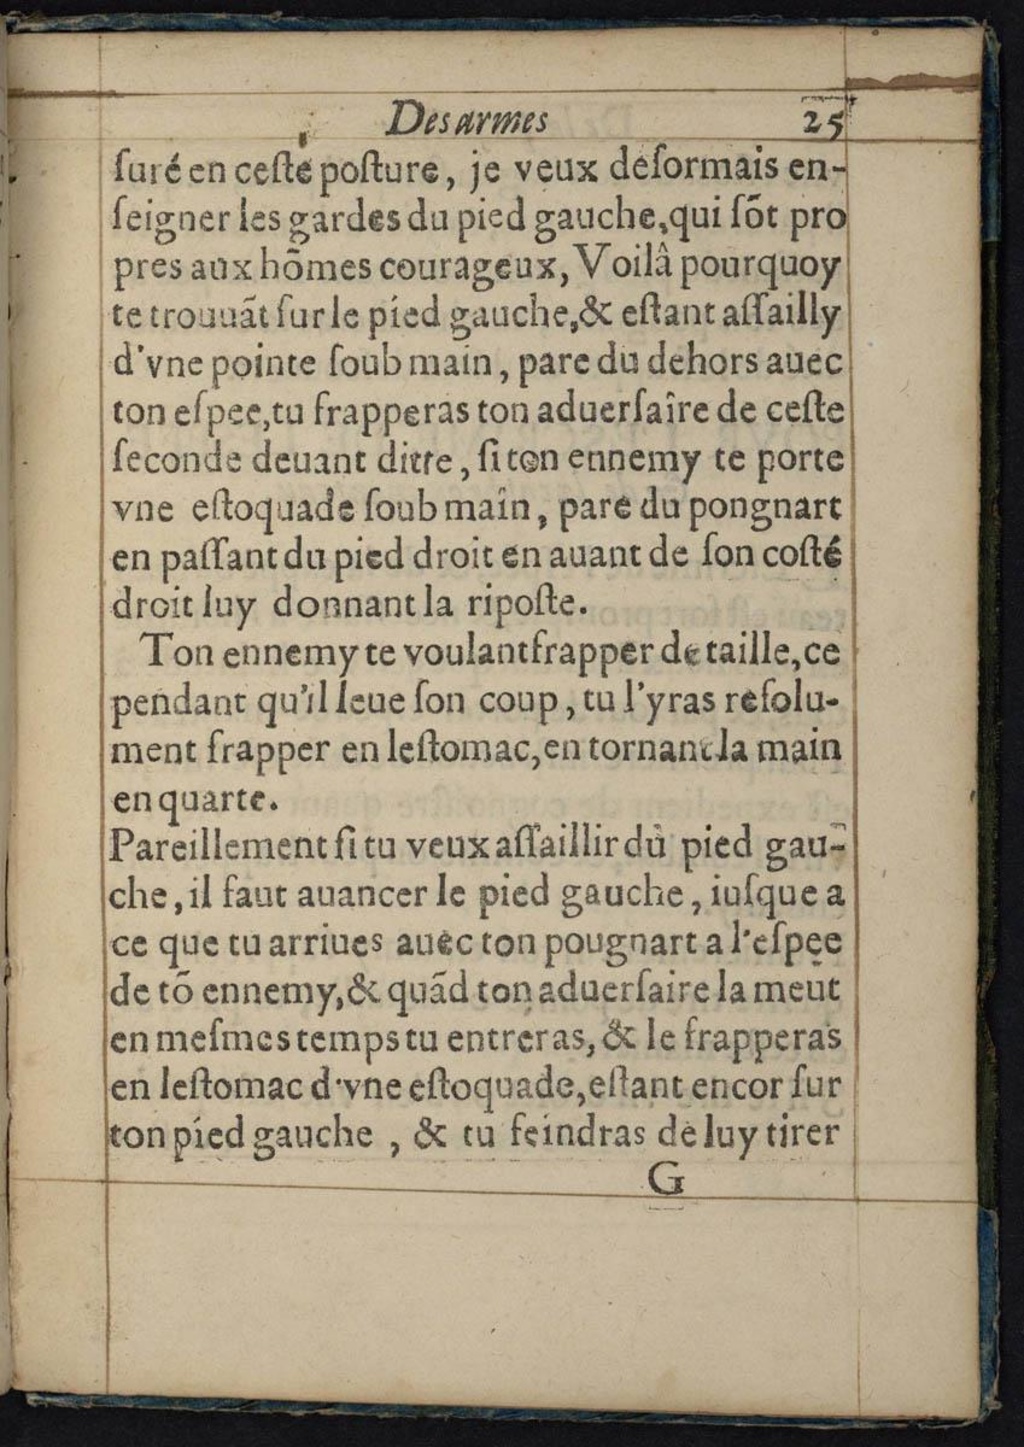 Des armes 25
ſuré en ceſte poſture, je veux deſormais en-
ſeigner les gardes du pied gauche, qui ſõt pro
pres aux hõmes courageux, Voilâ pourquoy
te trouuãt ſur le pied gauche, & eſtant aſſailly
d'vne pointe ſoub main, pare du dehors auec
ton eſpee, tu frapperas ton aduerſaîre de ceſte
ſeconde deuant ditte, ſi ton ennemy te porte
vne eſtoquade ſoub maîn, pare du pongnart
en paſſant du pied droit en auant de ſon coſté
droit luy donnant la ripoſte.
Ton ennemy te voulant frapper de taille, ce
pendant qu'il leue ſon coup, tu l'yras reſolu-
ment frapper en leſtomac, en tornant la main
en quarte.
Pareillement ſi tu veux aſſaillir dù pied gau-
che, il faut auancer le pied gauche, iuſque a
ce que tu arriues auèc ton pougnart a l'eſpee
de tõ ennemy, & quãd ton aduerſaire la meut
en meſmes temps tu entreras, & le frapperas
en leſtomac d'vne eſtoquade, eſtant encor ſur
ton pied gauche, & tu feindras de luy tirer
G